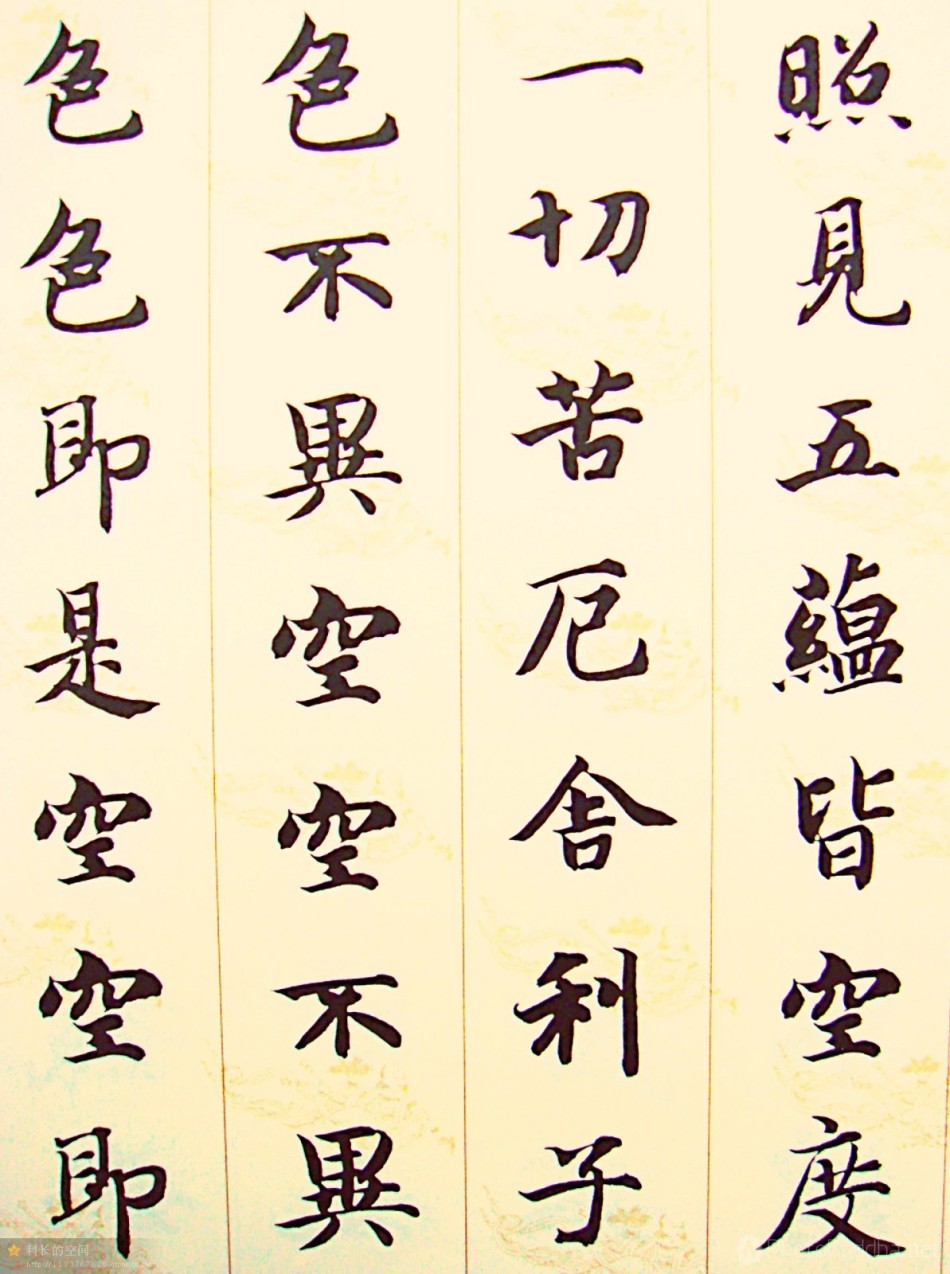 照見五蘊皆空度
一切苦厄舍利子
色不異空空不異
色色即是空空即
科长的空间